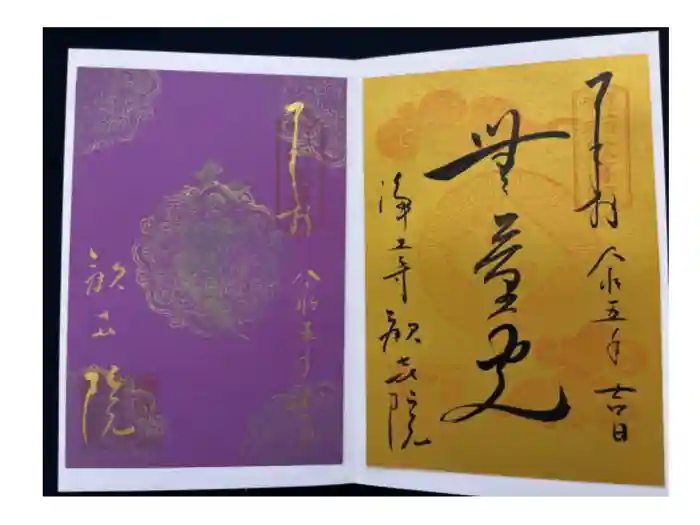 奉拝
令和五年吉日
無量
浄土寺歓喜院
奉拝
令和五年
歓喜院